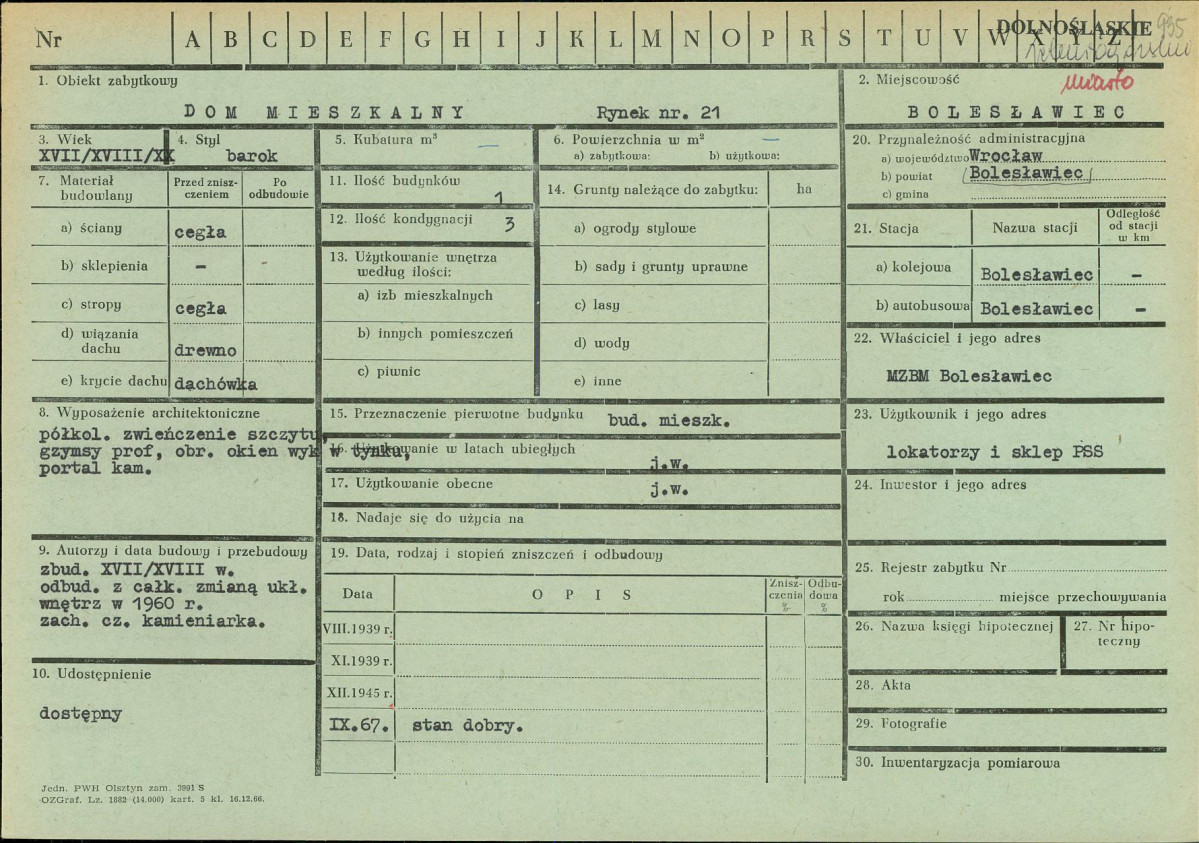 Nr A B C D E F G H I J K L M N O P R S T U V W X Y Z
DOLNOŚLĄSKIE
935
miasto
1. Obiekt zabytkowy
DOM MIESZKALNY Rynek nr. 21
2. Miejscowość
BOLESŁAWIEC
3. Wiek
XVII/XVIII/XX
4. Styl
barok
5. Kubatura m³
—
6. Powierzchnia w m² —
a) zabytkowa: b) użytkowa:
7. Materiał budowlany
Przed znisz-
czeniem
Po
odbudowie
a) ściany cegła
b) sklepienia – -
c) stropy cegła
d) wiązania
dachu drewno
e) krycie dachu dachówka
8. Wyposażenie architektoniczne
półkol. zwieńczenie szczytu,
gzymsy prof, obr. okien wyk w tynku,
portal kam.
9. Autorzy i data budowy i przebudowy
zbud. XVII/XVIII w.
odbud. z całk. zmianą ukł.
wnętrz w 1960 r.
zach. cz. kamieniarka.
10. Udostępnienie
dostępny
11. Ilość budynków
1
12. Ilość kondygnacji 3
13. Użytkowanie wnętrza
według ilości:
a) izb mieszkalnych
b) innych pomieszczeń
c) piwnic
14. Grunty należące do zabytku: ha
a) ogrody stylowe
b) sady i grunty uprawne
c) lasy
d) wody
e) inne
15. Przeznaczenie pierwotne budynku bud. mieszk.
16. Użytkowanie w latach ubiegłych
j.w.
17. Użytkowanie obecne j.w.
18. Nadaje się do użycia na
19. Data, rodzaj i stopień zniszczeń i odbudowy
Data OPIS
Znisz-
czenia
%
Odbu-
dowa
%
VIII.1939 r.
XI.1939 r.
XII.1945 r.
IX.67. stan dobry.
20. Przynależność administracyjna
a) województwo Wrocław
b) powiat Bolesławiec
c) gmina
21. Stacja Nazwa stacji
Odległość
od stacji
w km
a) kolejowa Bolesławiec –
b) autobusowa Bolesławiec –
22. Właściciel i jego adres
MZBM Bolesławiec
23. Użytkownik i jego adres
lokatorzy i sklep PSS
24. Inwestor i jego adres
25. Rejestr zabytku Nr
rok miejsce przechowywania
26. Nazwa księgi hipotecznej
27. Nr hipo-
teczny
28. Akta
29. Fotografie
30. Inwentaryzacja pomiarowa
Jedn. PWH Olsztyn zam. 3991 S
OZGraf. Lz. 1882 (14.000) kart. 5 kl. 16.12.66.